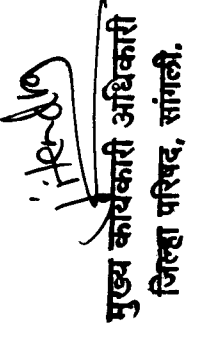 मुख्य कार्यकारी अधिकारी
जिल्हा परिषद, सांगली.